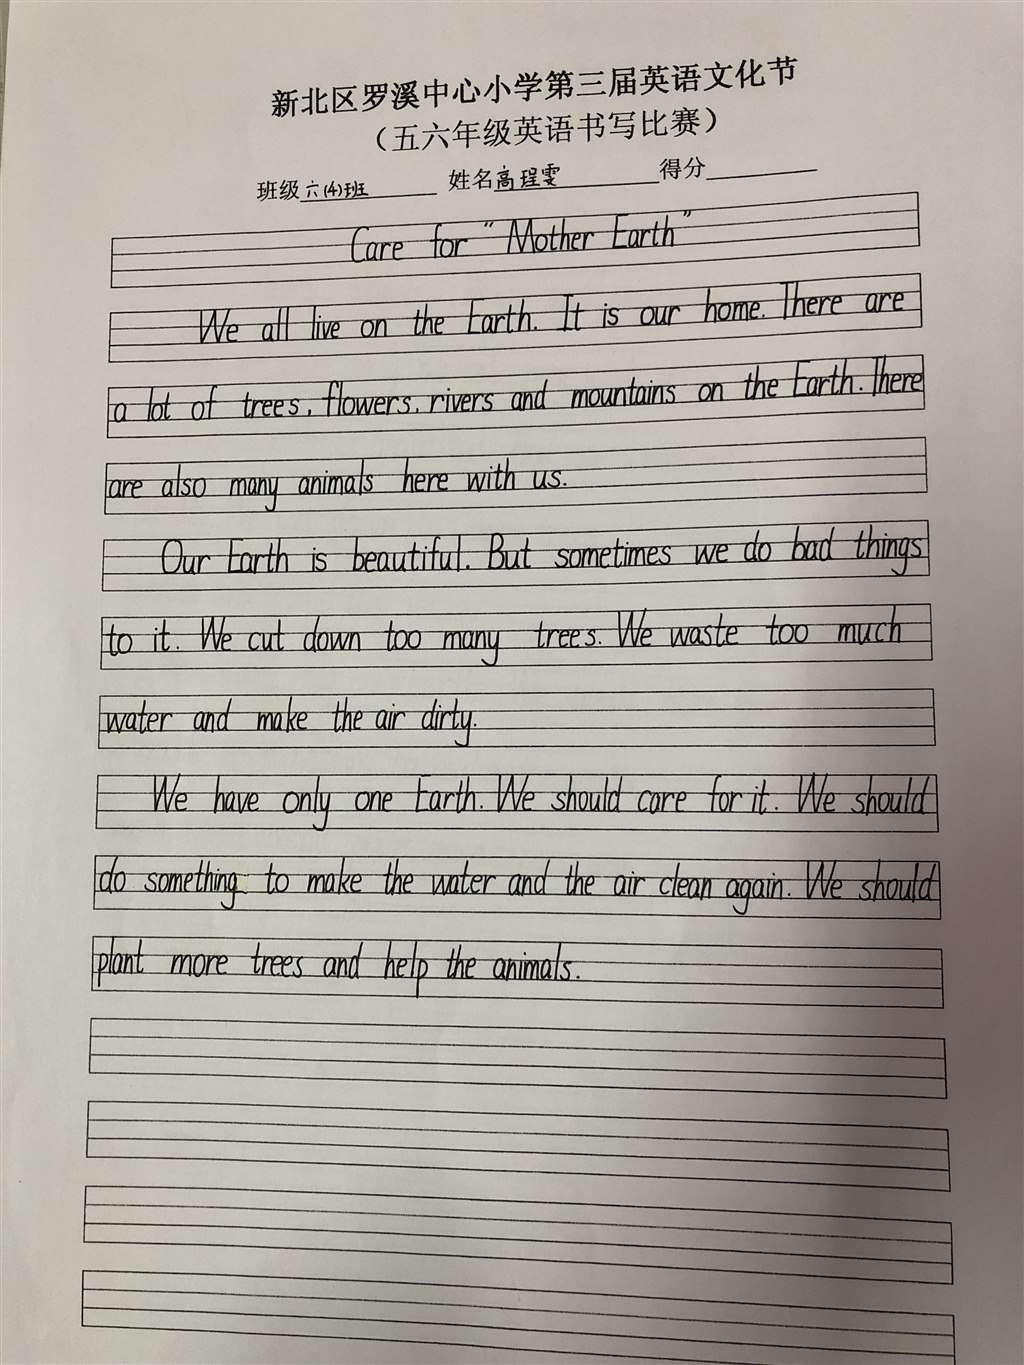 新北区罗溪中心小学第三届英语文化节
（五六年级英语书写比赛）
班级六(4)班 姓名高程雯 得分
Care for "Mother Earth"
We all live on the Earth. It is our home. There are
a lot of trees, flowers, rivers and mountains on the Earth. There
are also many animals here with us.
Our Earth is beautiful. But sometimes we do bad things
to it. We cut down too many trees. We waste too much
water and make the air dirty.
We have only one Earth. We should care for it. We should
do something to make the water and the air clean again. We should
plant more trees and help the animals.